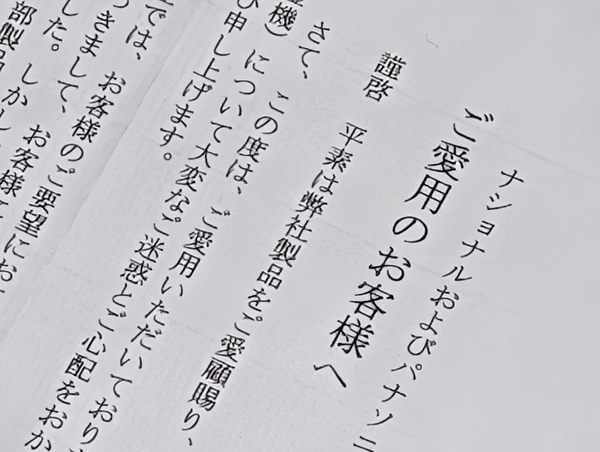 ナショナルおよびパナソニ
ご愛用のお客様へ
謹啓 平素は弊社製品をご愛顧賜り、
さて、この度は、ご愛用いただいており
機)について大変なご迷惑とご心配をおか
申し上げます。
では、お客様のご要望にお
つきまして、お客様に
した。しかし
部製品